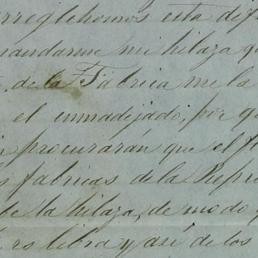 arreglemos esta dif
mandarme mi hilaza q
de la Fábrica me la
el enmadejado, por q
procurarán que el f
fabricas de la
be la hilaza, de modo
rs libra y asi de los